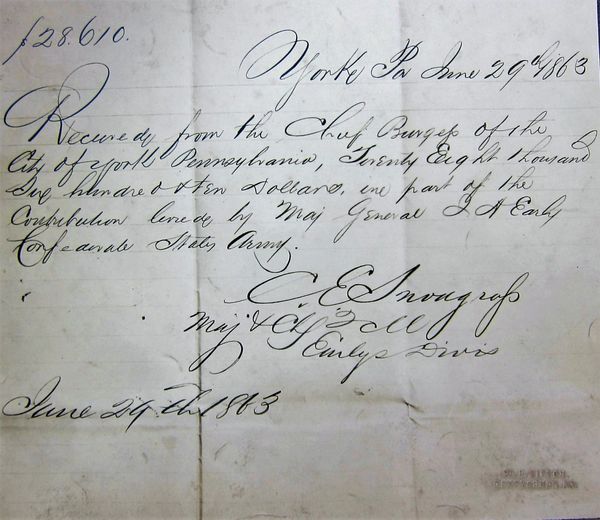 $28.610.
York Pa June 29th 1863
Received from the Chief Burgess of the
City of York Pennsylvania, Twenty Eight thousand
Six hundred & ten Dollars, in part of the
Contribution levied by Maj General J A Early
Confederate States Army.
C E Snodgrass
Maj & C Q M
Earlys Divis
June 29th 1863